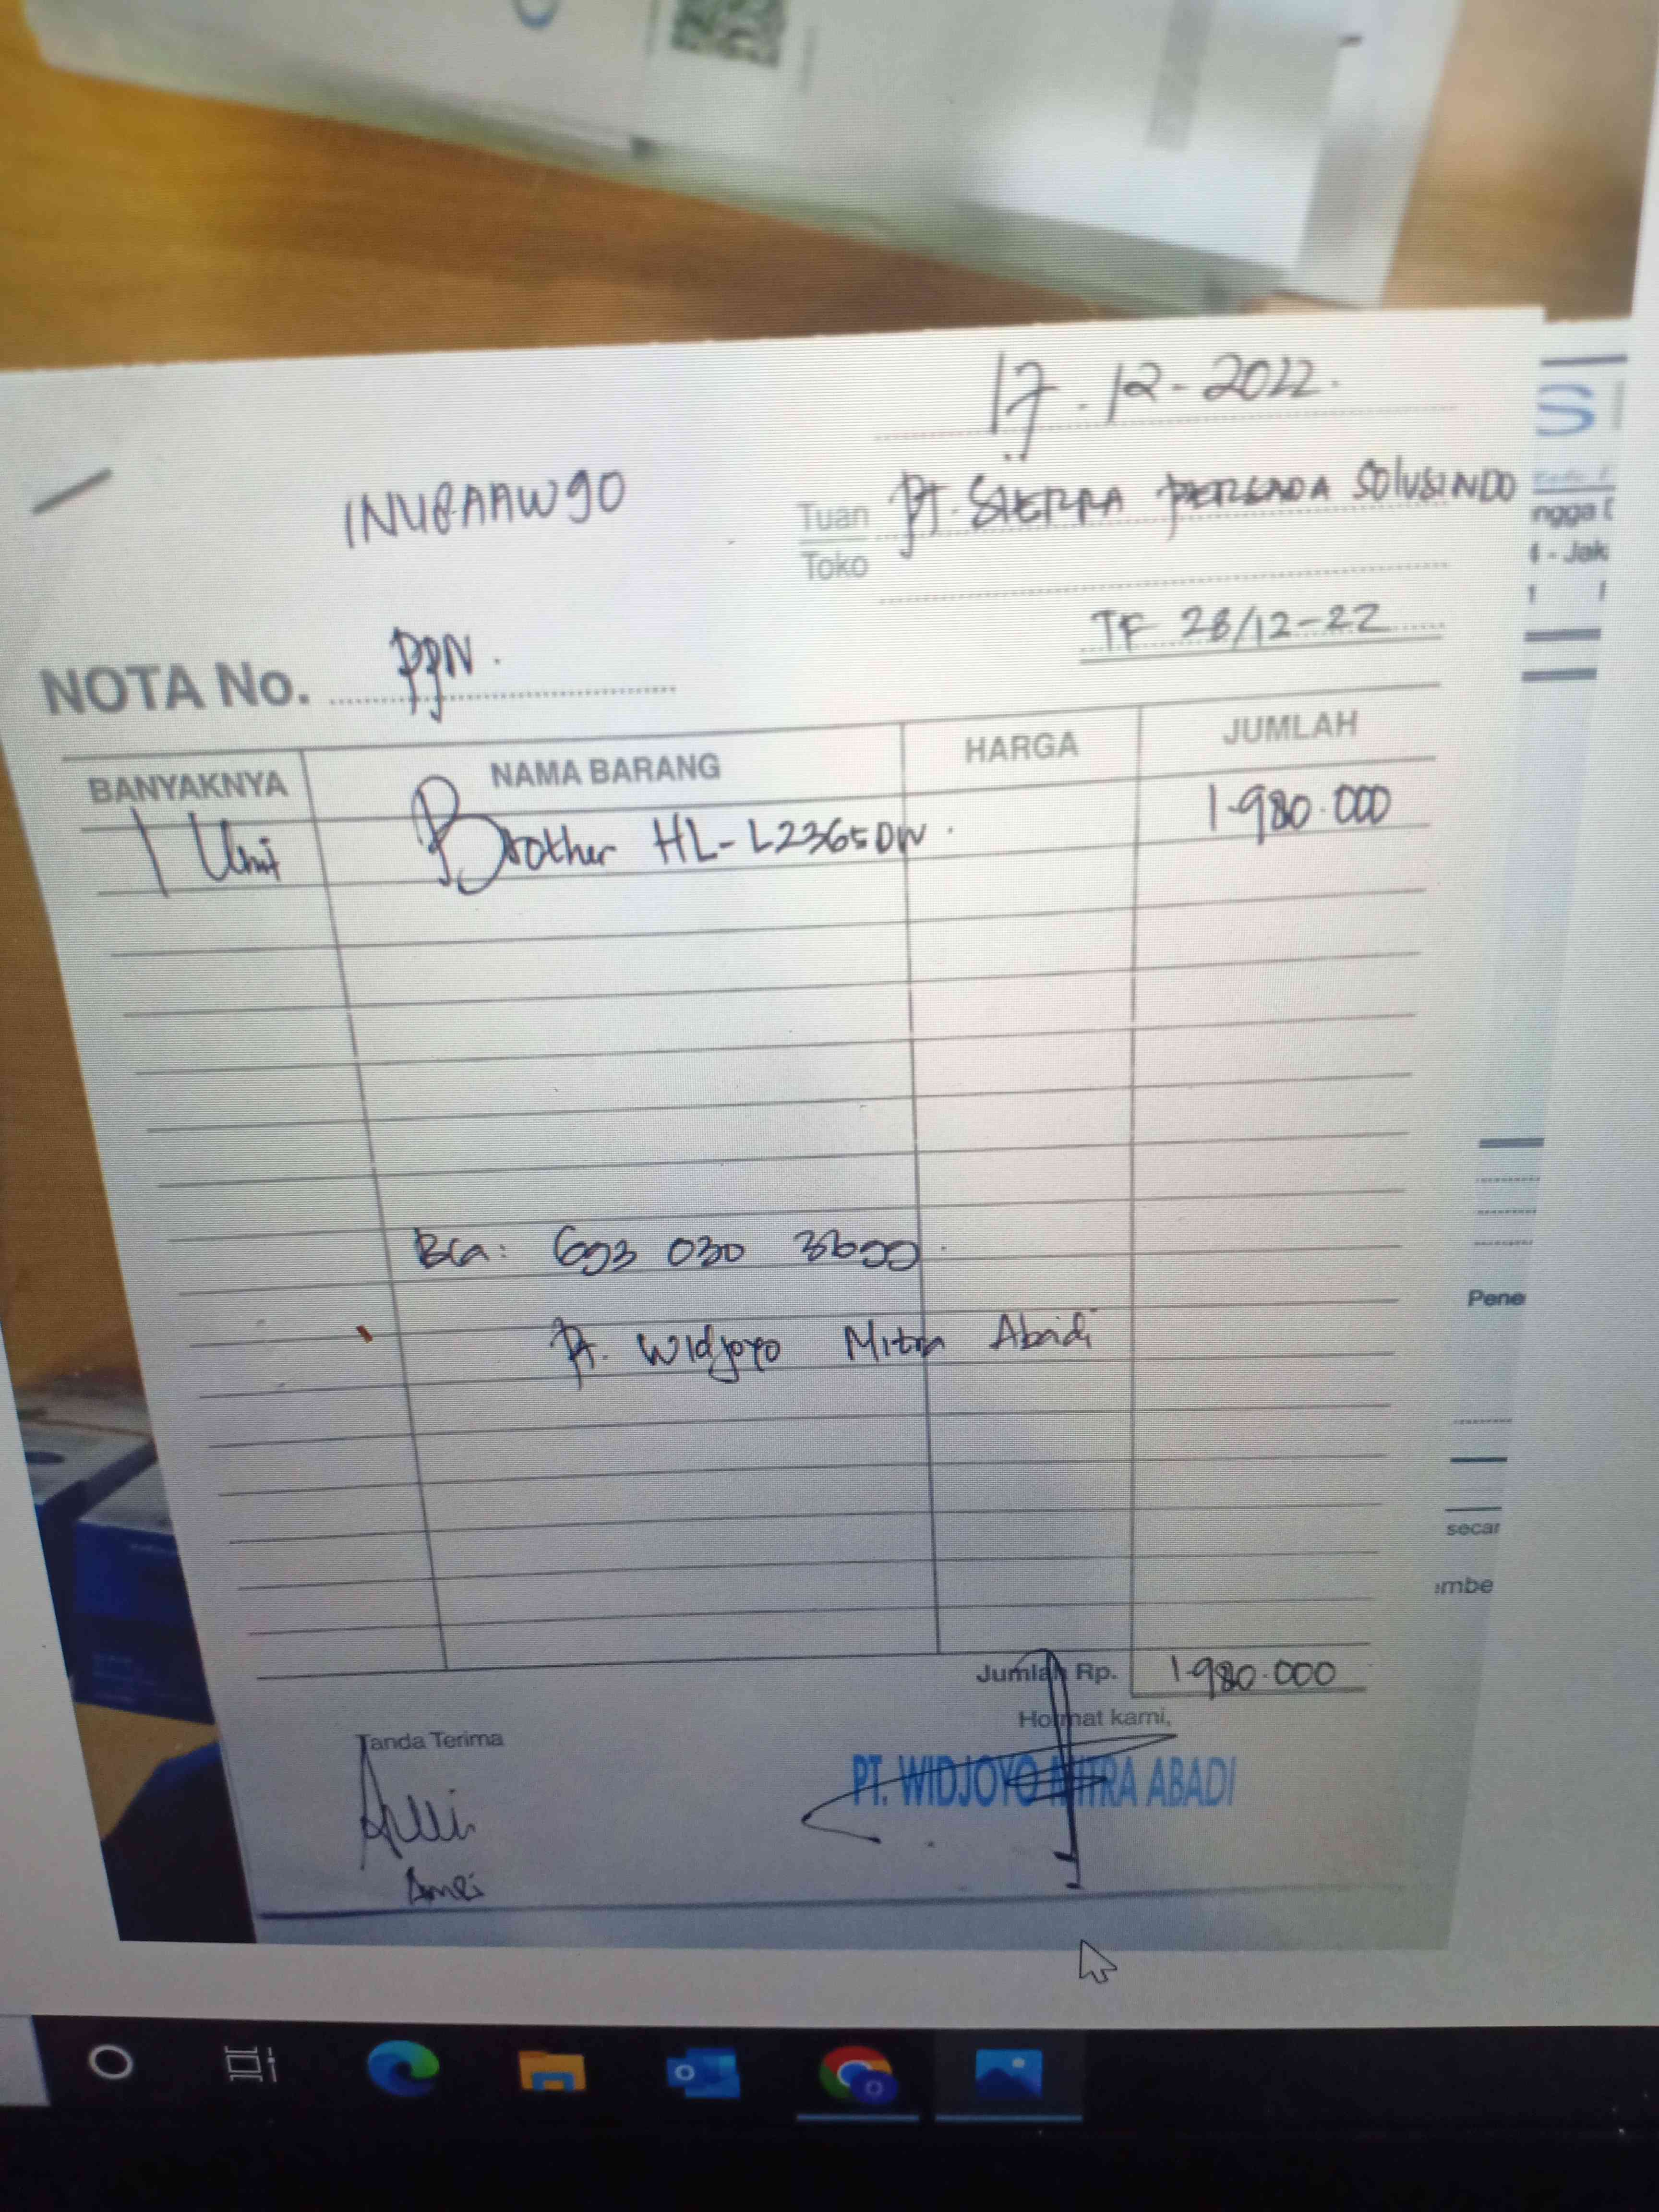 17-12-2022.
INU8AAW90
Tuan PT. SIERRA PERSADA SOLUSINDO
Toko
TF 28/12-22
NOTA No. PPN.
BANYAKNYA NAMA BARANG HARGA JUMLAH
1 Unit Brother HL-L2365DW. 1.980.000
BCA: 693 030
PT. Widjoyo Mitra Abadi
Jumlah Rp. 1.980.000
Tanda Terima Hormat kami,
PT. WIDJOYO MITRA ABADI
Amei
S
ngga
- Jak
Pene
secar
mbe